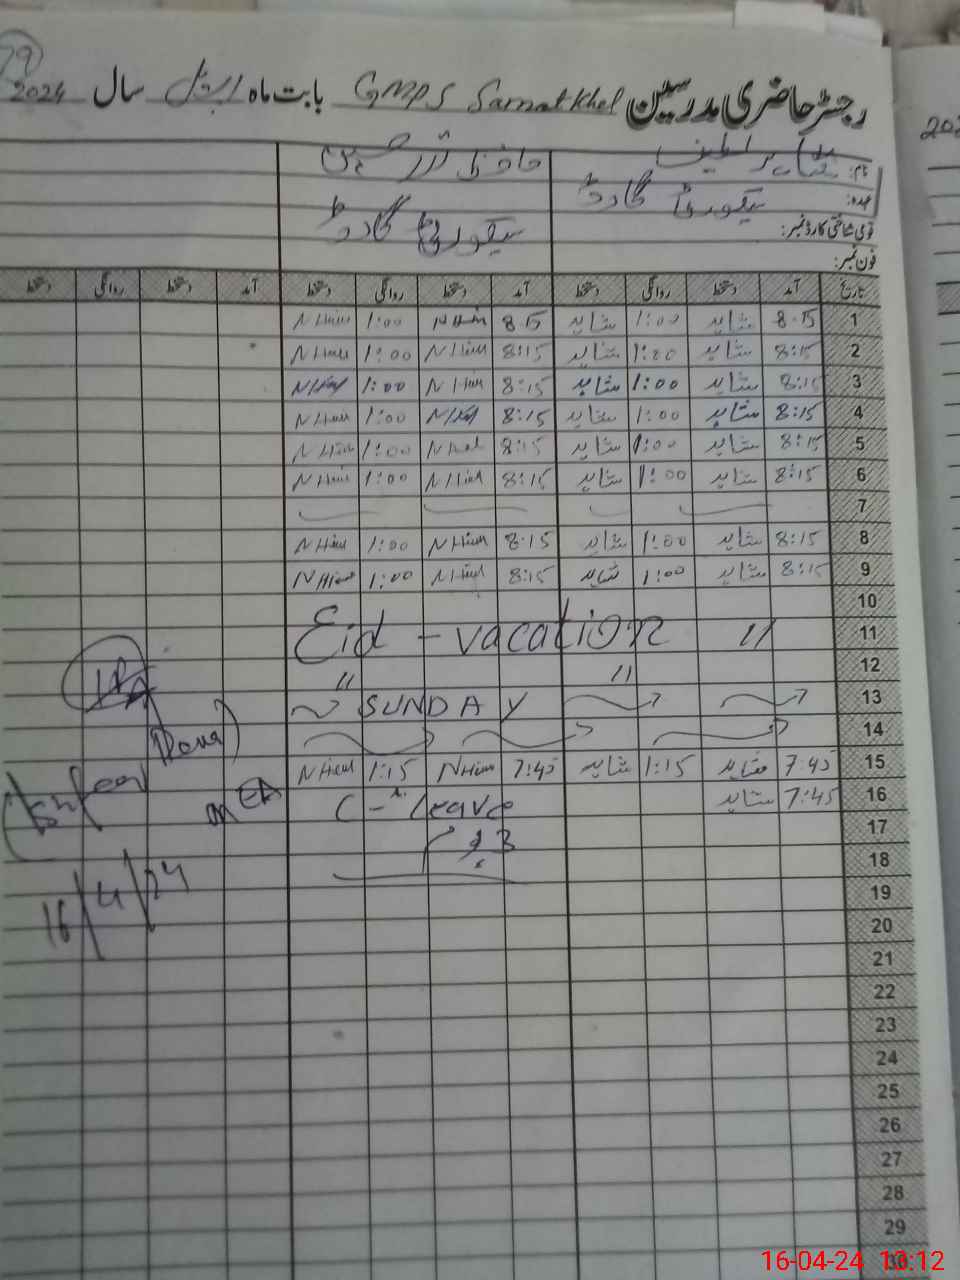 رجسٹر حاضری مدرسین GMPS Samatkhel بابت ماہ اپریل سال 2024
79
نام: شاہد لطیف حافظ نذر حسین
عہدہ: سیکورٹی گارڈ سیکورٹی گارڈ
قومی شناختی کارڈ نمبر:
فون نمبر:
تاریخ آمد دستخط روانگی دستخط آمد دستخط روانگی دستخط آمد دستخط روانگی دستخط
1 8:15 شاہد 1:00 شاہد 8:15 N Hien 1:00 N Hien
2 8:15 شاہد 1:00 شاہد 8:15 N Hien 1:00 N Hien
3 8:15 شاہد 1:00 شاہد 8:15 N Hien 1:00 N Hien
4 8:15 شاہد 1:00 شاہد 8:15 N Hien 1:00 N Hien
5 8:15 شاہد 1:00 شاہد 8:15 N Hien 1:00 N Hien
6 8:15 شاہد 1:00 شاہد 8:15 N Hien 1:00 N Hien
7
8 8:15 شاہد 1:00 شاہد 8:15 N Hien 1:00 N Hien
9 8:15 شاہد 1:00 شاہد 8:15 N Hien 1:00 N Hien
10
11 Eid - vacation 〃
12 〃 〃
13 SUNDAY
14
15 7:45 شاہد 1:15 شاہد 7:45 N Hien 1:15 N Hien
16 7:45 شاہد C - leave
17 3 یوم
18
19
20
21
22
23
24
25
26
27
28
29
30
MEA
16/4/24
202
16-04-24 10:12